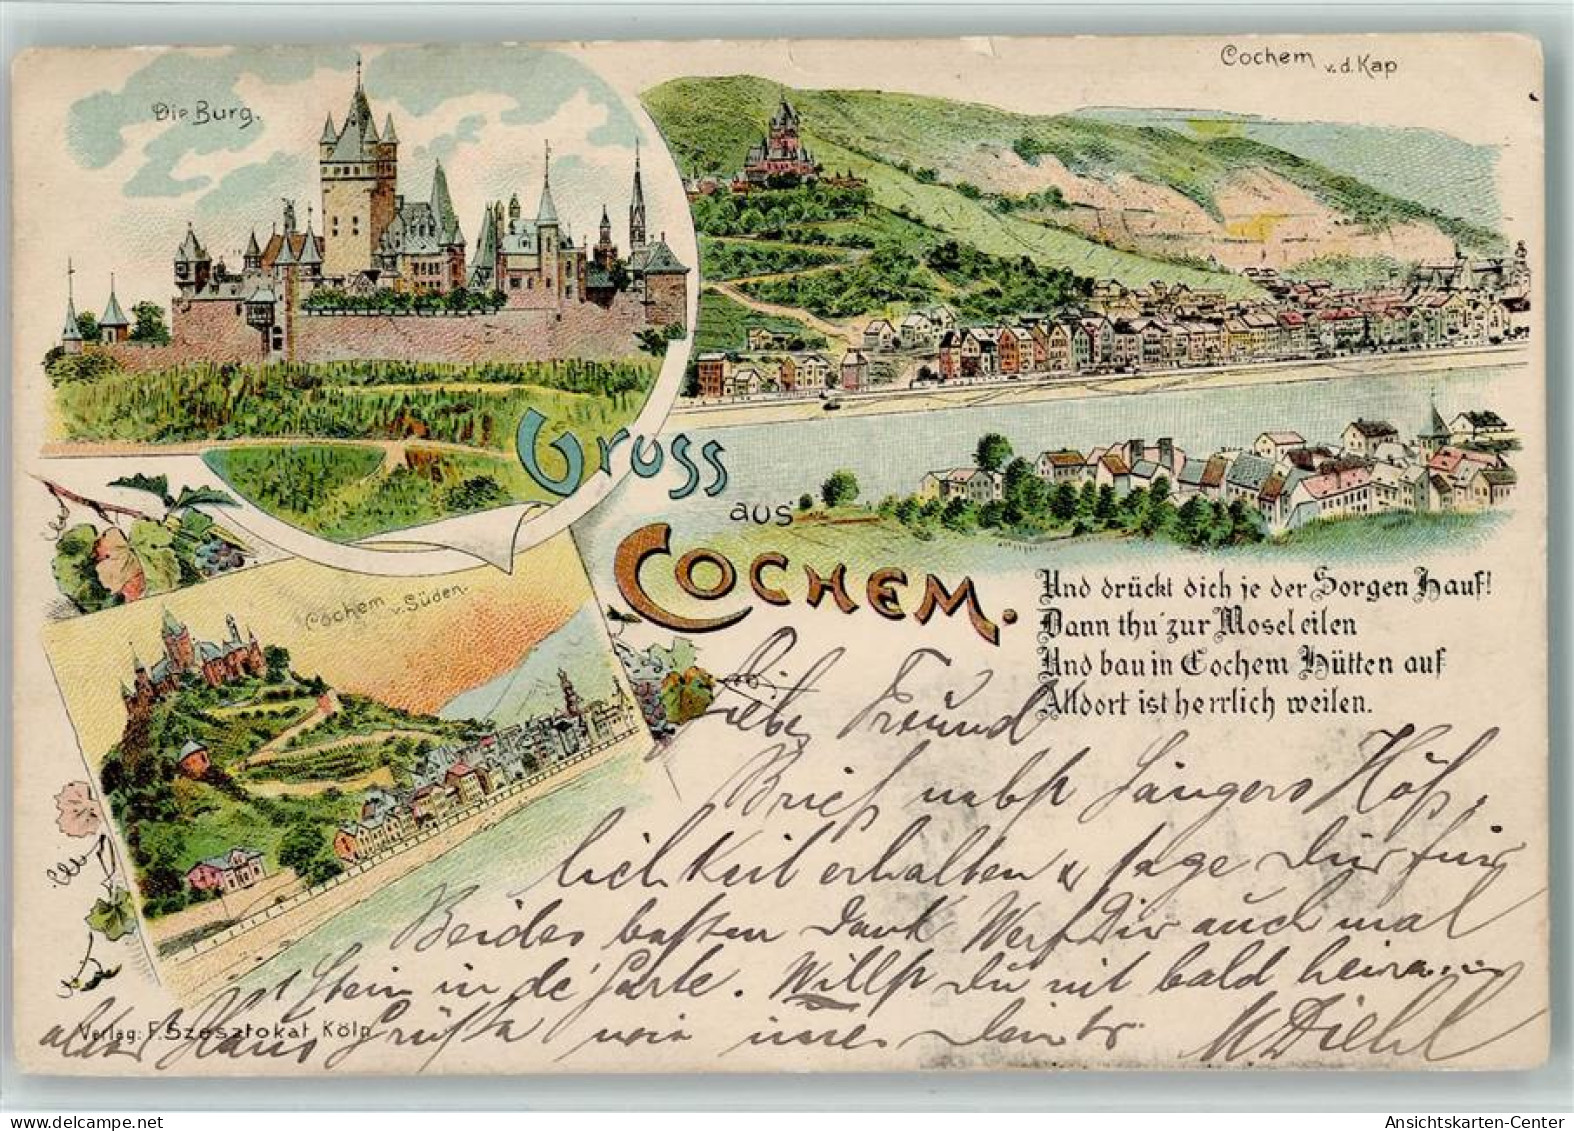 Die Burg.
Cochem v. d. Kap
Gruss
aus
Cochem.
Cochem v. Süden.
Und drückt dich je der Sorgen Hauf!
Dann thu' zur Mosel eilen
Und bau in Cochem Hütten auf
Alldort ist herrlich weilen.
Lieber Freund
Brief nebst Sängers Höf-
lichkeit erhalten & sage Dir für
Beides besten Dank Werf Dir auch mal
'n Stein in de' Garte. Willst Du nit bald heira
altes Haus Grüße wir M. Diehl
Verlag: F. Szesztokat, Köln
ansichtskarten-center.de
Ansichtskarten-Center